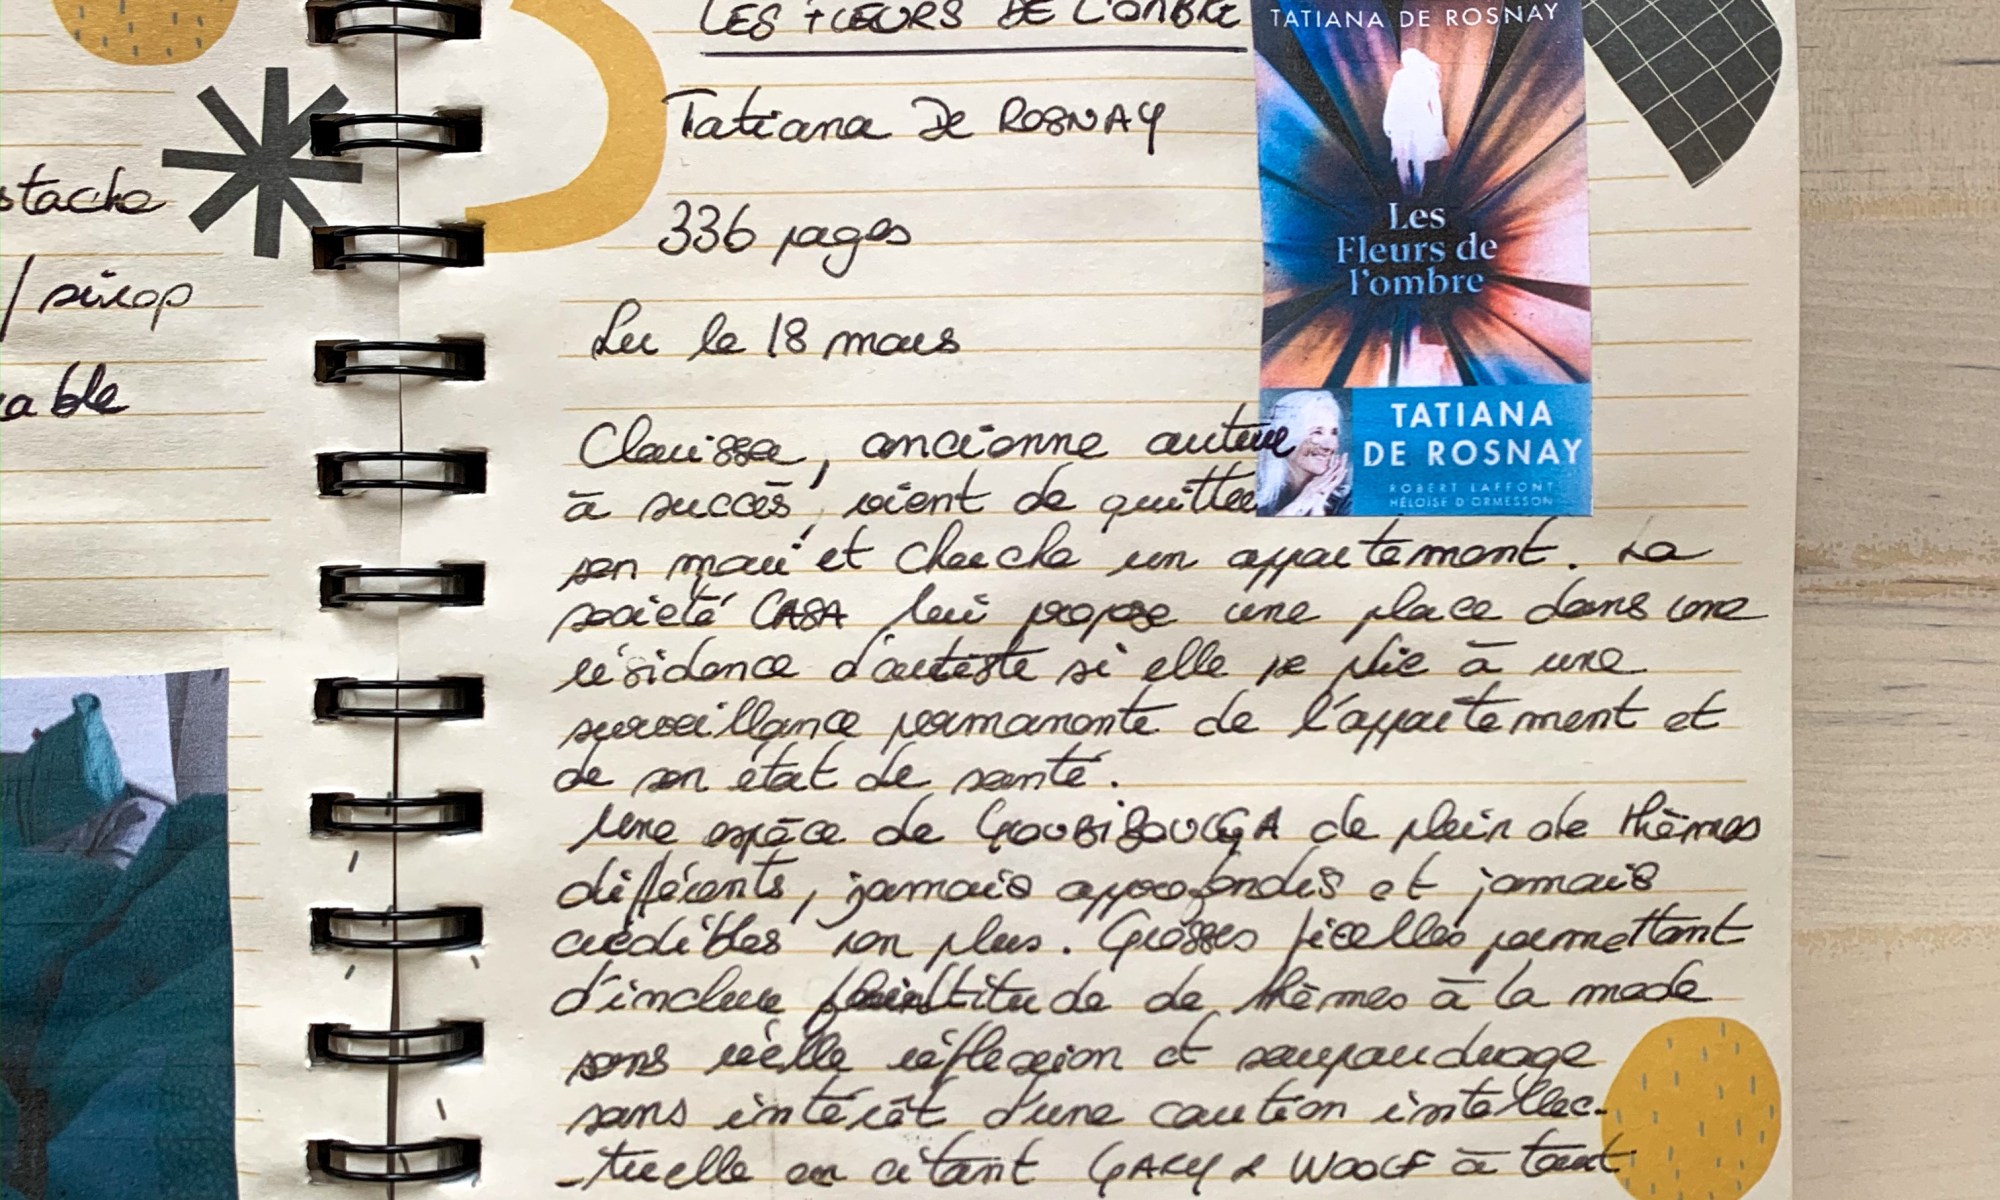 stache
/ sirop
able
LES FLEURS DE L'OMBRE
Tatiana De ROSNAY
336 pages
Lu le 18 mars
Clarissa, ancienne auteure
à succès, vient de quitter
son mari et cherche un appartement. La
société CASA lui propose une place dans une
résidence d'artiste si elle se plie à une
surveillance permanente de l'appartement et
de son état de santé.
Une espèce de GOUBIBOULGA de plein de thèmes
différents, jamais approfondis et jamais
crédibles non plus. Grosses ficelles permettant
d'inclure de thèmes à la mode
sans réelle réflexion et saupoudrage
sans intérêt d'une caution intellec-
-tuelle en citant GARY & WOOLF à tout
TATIANA DE ROSNAY
Les
Fleurs de
l'ombre
TATIANA
DE ROSNAY
ROBERT LAFFONT
HÉLOÏSE D'ORMESSON